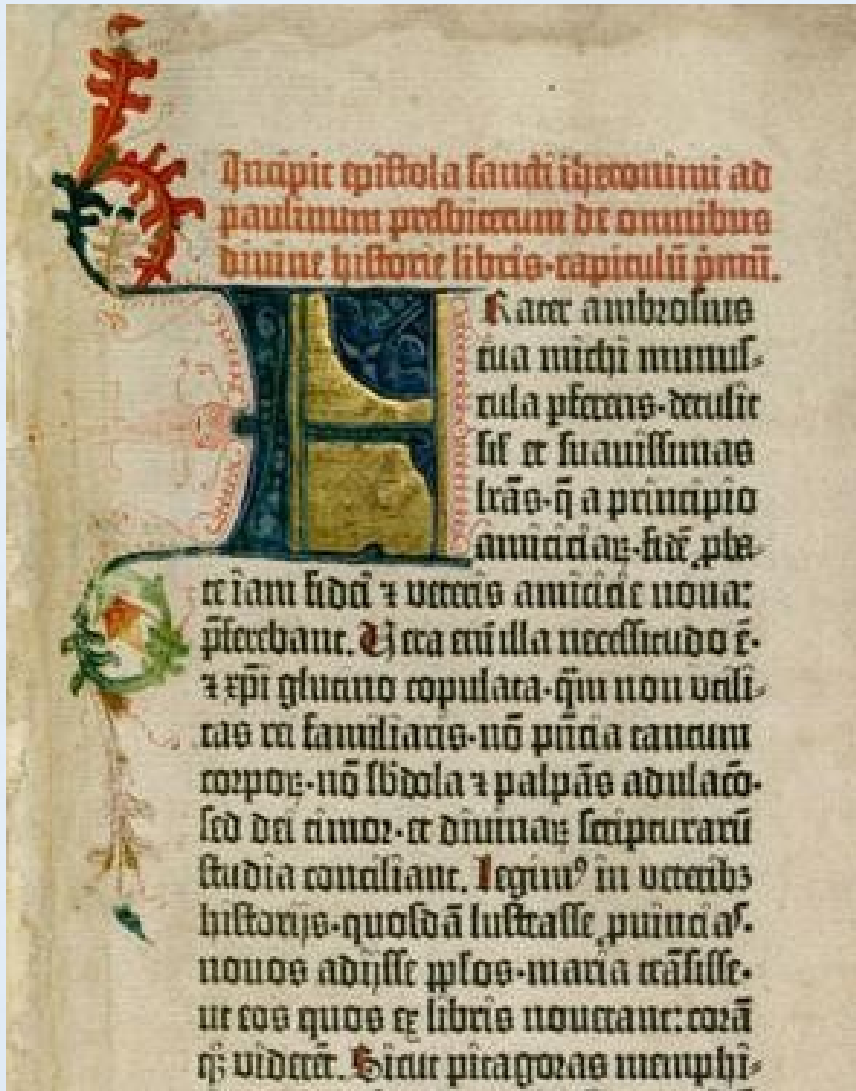 Incipit epistola sancti iheronimi ad
paulinum presbiterum de omnibus
divine historie libris·capitulū p̄mū.
Frater ambrosius
tua michi munus-
cula pferens·detulit
sil̄ et suavissimas
lrās·q̄ a principio
amiciciaꝝ·fidē ꝓba-
te iam fidei ⁊ veteris amicicie nova:
p̄ferebant. Vera em̄ illa necessitudo ē·
⁊ xp̄i glutino copulata·q̄m non utili-
tas rei familiaris·nō p̄ncia tantum
corpoꝝ·nō sb̄dola ⁊ palpās adulac̄o·
sed dei timor·et divinaꝝ scripturarū
studia conciliant. Legimꝰ in veteribꝫ
historijs·quosdā lustrasse ꝓvincias·
novos adijsse ꝓp̄los·maria trāsisse·
ut eos quos ex libris noverant: corā
qꝫ viderēt. Sicut pitagoras memphi-